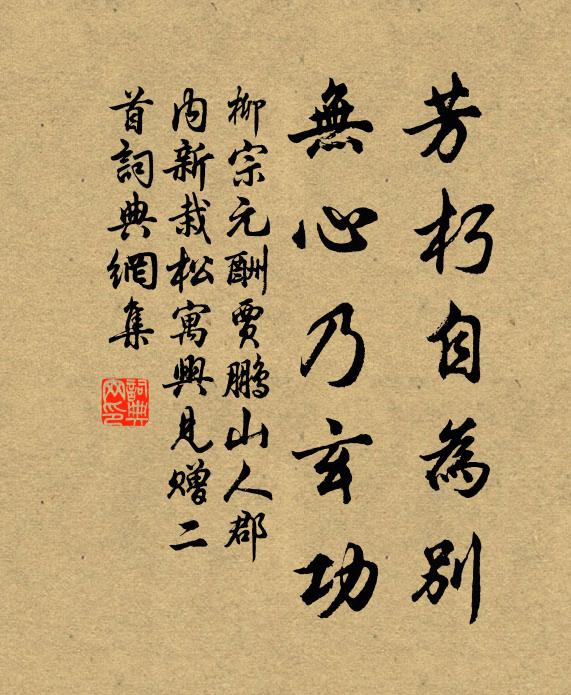 芳朽自為別
無心乃玄功
柳宗元酬賈鵬山人郡
內新栽松寓興見贈二
首詞典網集
詞典
網印